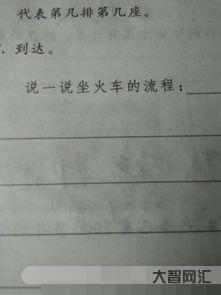 代表第几排第几座。
. 到达。
说一说坐火车的流程:
大智网汇